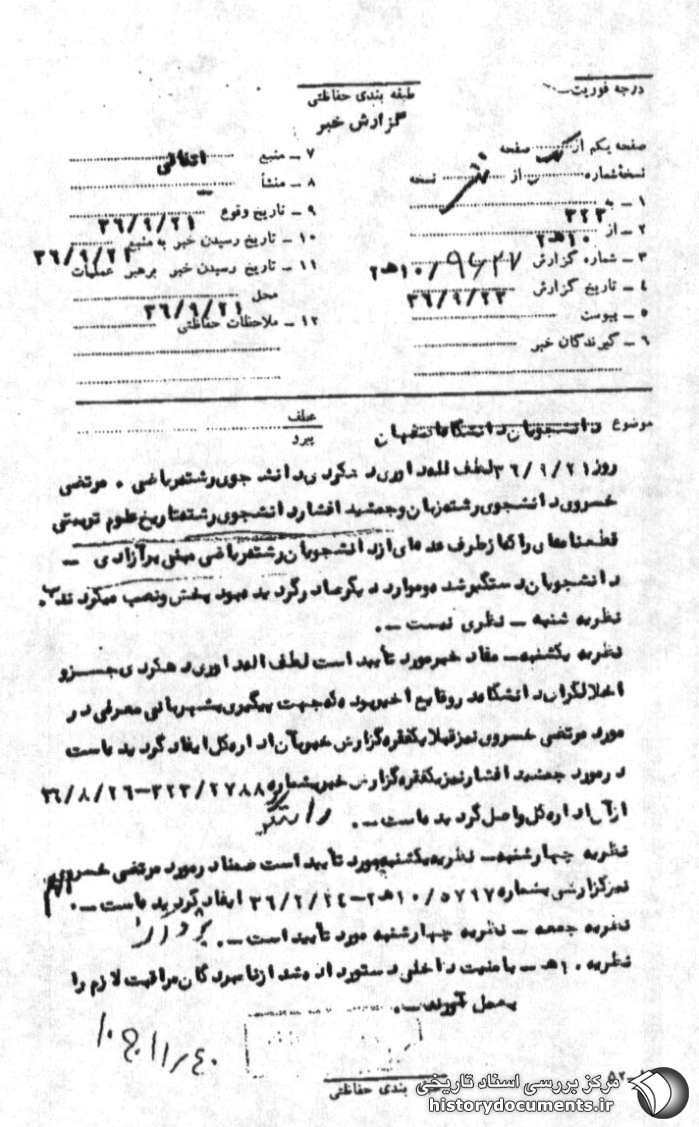 درجه فوریت
طبقه بندی حفاظتی
گزارش خبر
صفحه یکم از یک صفحه
نسخه شماره از نسخه
۱ ـ به ۳۲۳
۲ ـ از ۱۰هـ۲
۳ ـ شماره گزارش ۲هـ۱۰/
۴ ـ تاریخ گزارش ۳۶/۹/۲۳
۵ ـ پیوست
۶ ـ گیرندگان خبر
۷ ـ منبع اتفاقی
۸ ـ منشأ
۹ ـ تاریخ وقوع ۳۶/۹/۲۱
۱۰ ـ تاریخ رسیدن خبر به منبع ۳۶/۹/۲۱
۱۱ ـ تاریخ رسیدن خبر برهبر عملیات
محل ۳۶/۹/۲۱
۱۲ ـ ملاحظات حفاظتی
موضوع دانشجویان دانشگاه اصفهان
عطف
پیرو
روز ۳۶/۹/۲۱ لطف اله داوری دهکردی دانشجوی رشته ریاضی . مرتضی
خسروی دانشجوی رشته زبان و جمشید افشار دانشجوی رشته تاریخ علوم تربیتی
قطعنامه‌ای را که از طرف عده‌ای از دانشجویان رشته ریاضی مبنی بر آزادی ـ
دانشجویان دستگیر شده و موارد دیگر صادر گردیده بود پخش و نصب میکردند.
نظریه شنبه ـ نظری نیست ـ.
نظریه یکشنبه ـ مفاد خبر مورد تأیید است لطف اله داوری دهکردی جزو
اخلالگران دانشگاه در وقایع اخیر بوده که جهت پیگیری بشهربانی معرفی در
مورد مرتضی خسروی نیز قبلا یکفقره گزارش خبر بآن اداره کل ایفاد گردیده است
در مورد جمشید افشار نیز یکفقره گزارش خبر بشماره ۳۲۳/۲۷۸۸-۳۶/۸/۲۶
از آن اداره کل واصل گردیده است ـ.
نظریه چهارشنبه ـ نظریه یکشنبه مورد تأیید است ضمنا در مورد مرتضی خسروی
نیز گزارشی بشماره ۵۷۱۷/۱۰هـ۲-۳۶/۷/۲۴ ایفاد گردیده است ـ.
نظریه جمعه ـ نظریه چهارشنبه مورد تأیید است ـ.
نظریه ۱۰هـ ـ بامنیت داخلی دستور داده شد از نامبردگان مراقبت لازم را
بعمل آورند ـ.
بندی حفاظتی
۵۲
مرکز بررسی اسناد تاریخی
historydocuments.ir